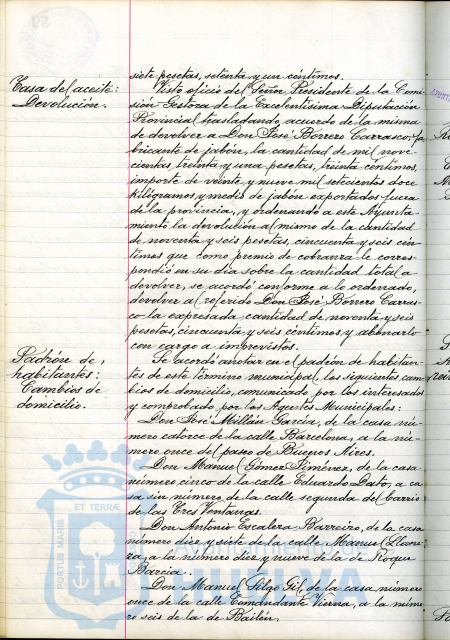 siete pesetas, setenta y un céntimos.
Tasa del aceite:
Devolución.
Visto oficio del Señor Presidente de la Comi-
sión Gestora de la Excelentísima Diputación
Provincial, trasladando acuerdo de la misma
de devolver a Don José Borrero Carrasco, fa-
bricante de jabón, la cantidad de mil nove-
cientas treinta y una pesetas, treinta céntimos,
importe de veinte y nueve mil setecientos doce
kilógramos y medio de jabón exportados fuera
de la provincia, y ordenando a este Ayunta-
miento la devolución al mismo de la cantidad
de noventa y seis pesetas, cincuenta y seis cén-
timos que como premio de cobranza le corres-
pondió en su día sobre la cantidad total a
devolver, se acordó conforme a lo ordenado,
devolver al referido Don José Borrero Carras-
co la expresada cantidad de noventa y seis
pesetas, cincuenta y seis céntimos y abonarlo
con cargo a imprevistos.
Padrón de
habitantes:
Cambios de
domicilio.
Se acordó anotar en el padrón de habitan-
tes de este término municipal, los siguientes cam-
bios de domicilio, comunicado por los interesados
y comprobado por los Agentes Municipales:
Don José Millán García, de la casa nú-
mero catorce de la calle Barcelona, a la nú-
mero once del paseo de Buenos Aires.
Don Manuel Gómez Jiménez, de la casa
número cinco de la calle Eduardo Dato, a ca-
sa sin número de la calle segunda del barrio
de las Tres Ventanas.
Don Antonio Escalera Barreiro, de la casa
número diez y siete de la calle Manuel
a la número diez y nueve de la de Roque
Barcia.
Don Manuel Silgo Gil, de la casa número
once de la calle Comandante Vierna, a la núme-
ro seis de la de Bailén.
PORTUS MARIS
ET TERRÆ